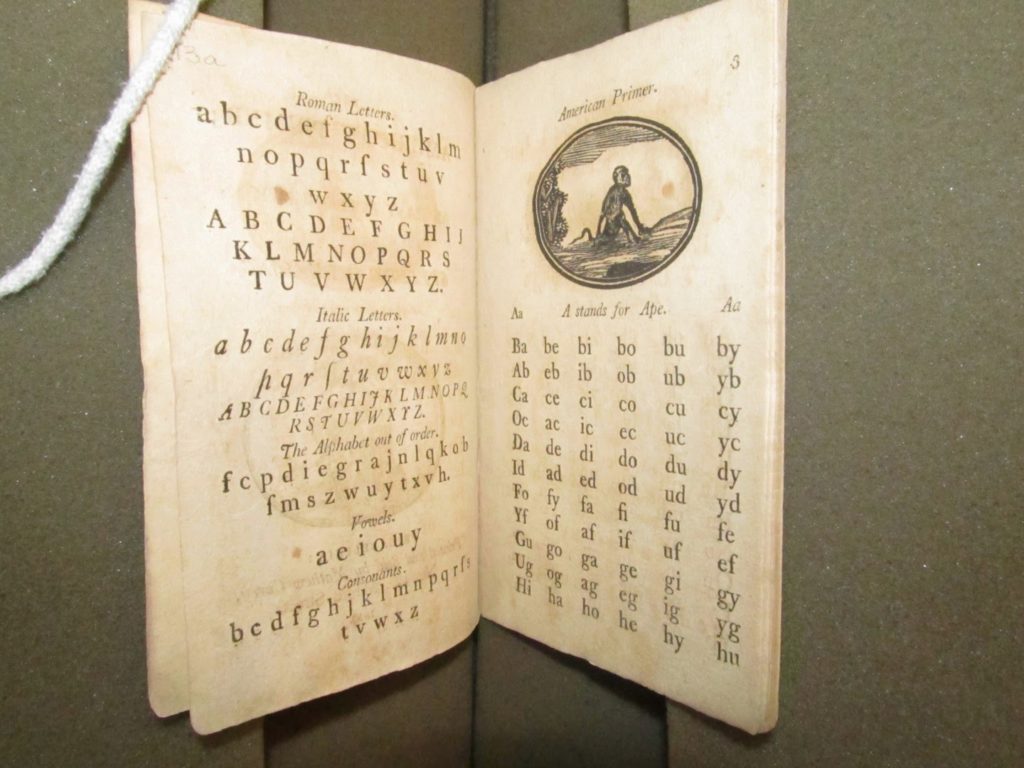 13a
Roman Letters.
a b c d e f g h i j k l m
n o p q r ſ s t u v
w x y z
A B C D E F G H I J
K L M N O P Q R S
T U V W X Y Z.
Italic Letters.
a b c d e f g h i j k l m n o
p q r ſ t u v w x y z
A B C D E F G H I J K L M N O P Q
R S T U V W X Y Z.
The Alphabet out of order.
f c p d i e g r a j n l q k o b
ſ m s z w u y t x v h.
Vowels.
a e i o u y
Consonants.
b c d f g h j k l m n p q r ſ s
t v w x z
3
American Primer.
Aa A stands for Ape. Aa
Ba be bi bo bu by
Ab eb ib ob ub yb
Ca ce ci co cu cy
Oc ac ic ec uc yc
Da de di do du dy
Id ad ed od ud yd
Fo fy fa fi fu fe
Yf of af if uf ef
Gu go ga ge gi gy
Ug og ag eg ig yg
Hi ha ho he hy hu